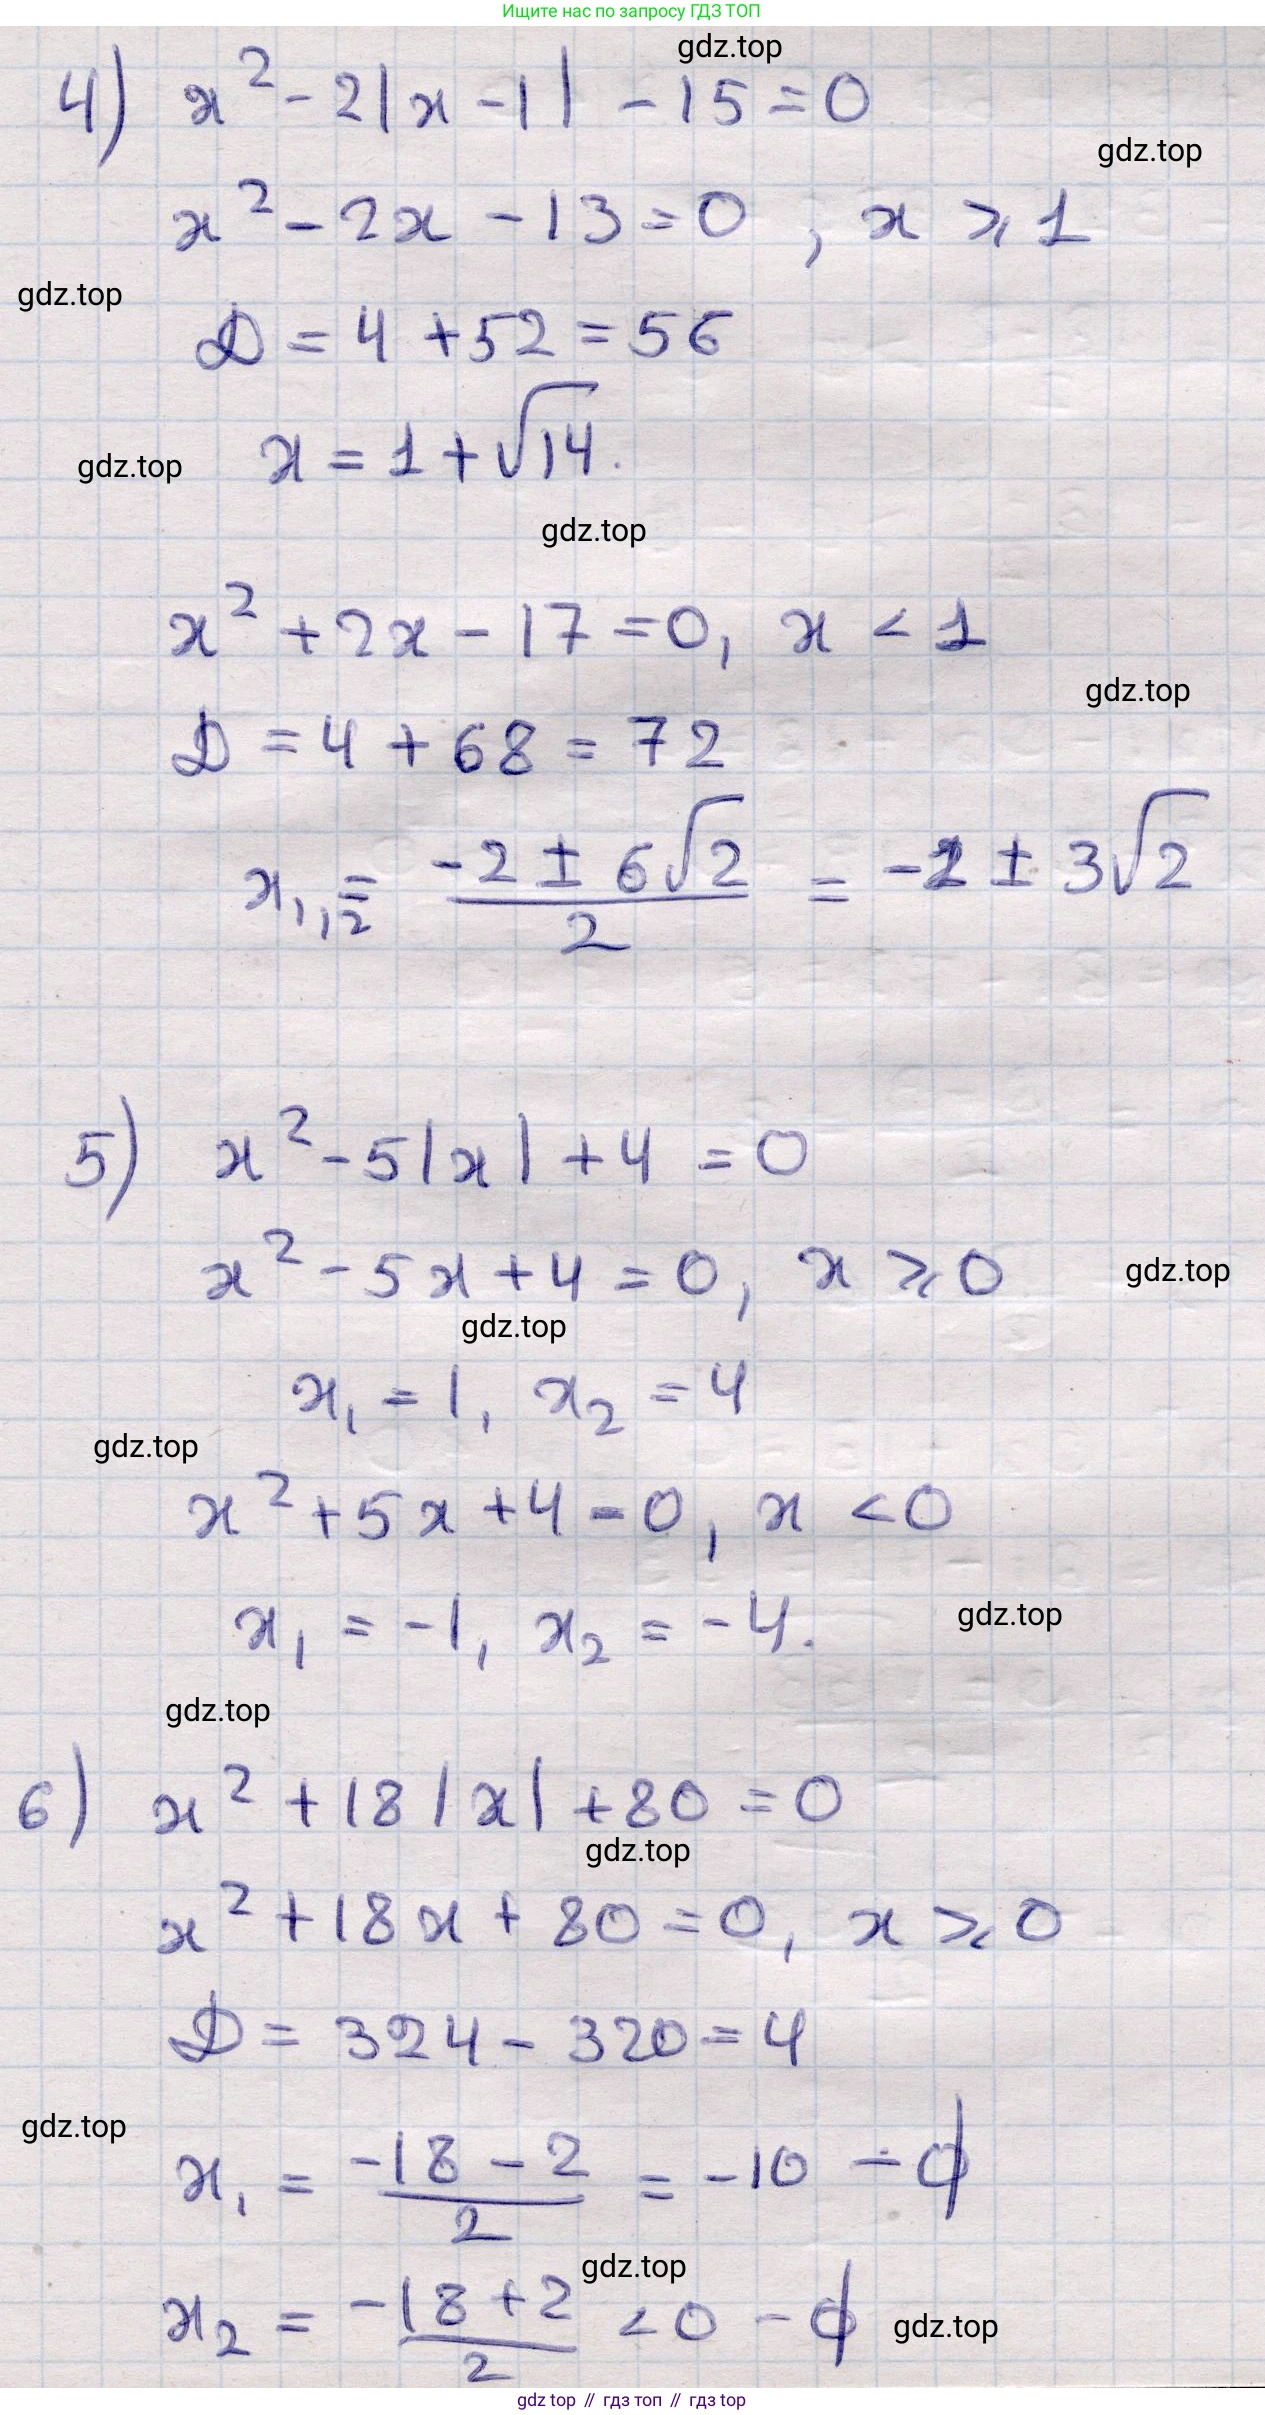 Ищите нас по запросу ГДЗ ТОП
gdz.top
4) x² - 2|x - 1| - 15 = 0
gdz.top
x² - 2x - 13 = 0 , x ⩾ 1
gdz.top
D = 4 + 52 = 56
gdz.top x = 1 + √14.
gdz.top
x² + 2x - 17 = 0, x < 1
gdz.top
D = 4 + 68 = 72
x₁,₂ = (-2 ± 6√2)/2 = -1 ± 3√2
5) x² - 5|x| + 4 = 0
x² - 5x + 4 = 0, x ⩾ 0 gdz.top
gdz.top
x₁ = 1, x₂ = 4
gdz.top
x² + 5x + 4 = 0, x < 0
x₁ = -1, x₂ = -4. gdz.top
gdz.top
6) x² + 18|x| + 80 = 0
gdz.top
x² + 18x + 80 = 0, x ⩾ 0
D = 324 - 320 = 4
gdz.top
x₁ = (-18 - 2)/2 = -10 - ϕ
gdz.top
x₂ = (-18 + 2)/2 < 0 - ϕ gdz.top
gdz top // гдз топ // gdz top